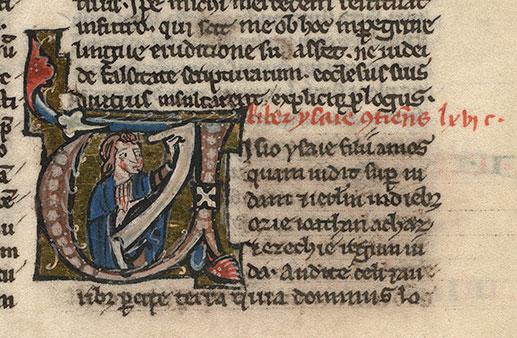 infuturo. qui scit me ob hoc inpegrine
lingue eruditione su asset. ne iudei
de falsitate scripturarum. ecclesiis suis
diutius insultarent. explicit plogus.
liber ysaie 9tinens lxvi c.
Uisio ysaie filii amos
quam uidit sup iu
dam ⁊ ierlm indieb;
ozie ioathan achaz
⁊ ezechie regum iu
da. Audite celi ⁊ au
rib; pcipe terra quia dominus lo